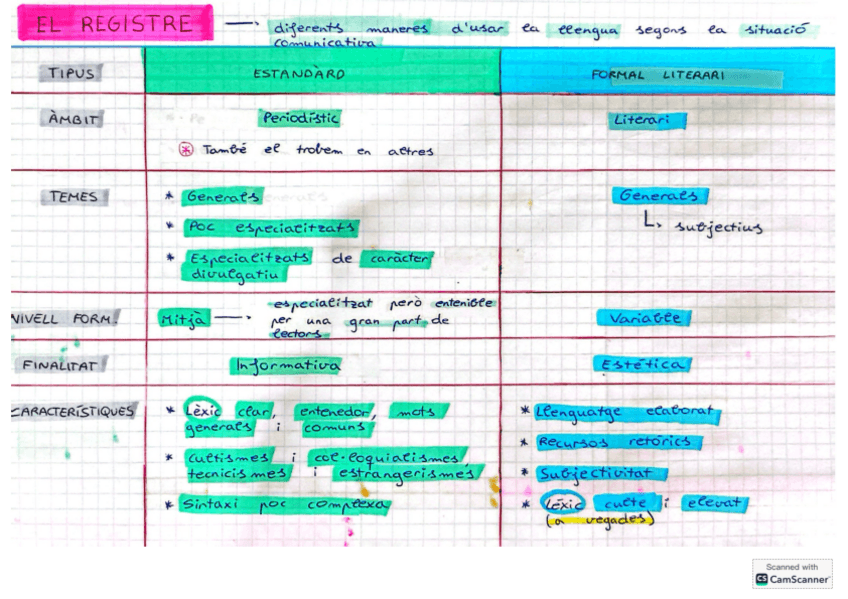 EL REGISTRE → diferents maneres d'usar la llengua segons la situació
comunicativa
TIPUS ESTANDÀRD FORMAL LITERARI
ÀMBIT Periodístic Literari
* També el trobem en altres
TEMES * Generals Generals
* Poc especialitzats ↳ subjectius
* Especialitzats de caràcter
divulgatiu
NIVELL FORM. Mitjà → especialitzat però entenible Variable
per una gran part de
lectors
FINALITAT Informativa Estética
CARACTERÍSTIQUES * Lèxic clar, entenedor, mots * Llenguatge elaborat
generals i comuns
* cultismes i col·loquialismes * Recursos retòrics
tecnicismes i estrangerismes * Subjectivitat
* Sintaxi poc complexa * Lèxic culte i elevat
(a vegades)
Scanned with
CS CamScanner